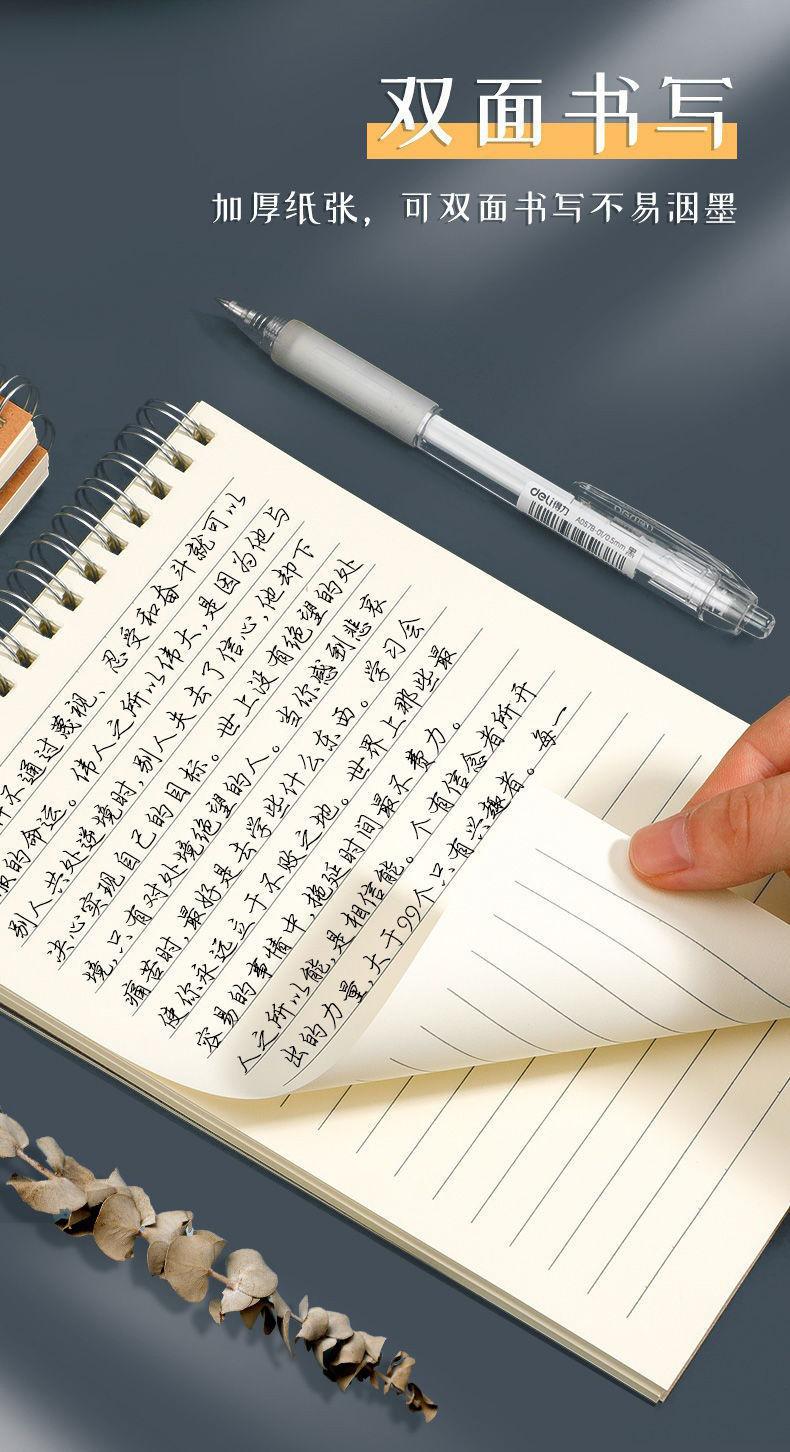 双面书写
加厚纸张，可双面书写不易洇墨
deli得力
A057B-01/0.5mm 黑
不通过蔑视、忍受和奋斗就可以
的命运。伟人之所以伟大，是因为他与
别人共处逆境时，别人失去了信心，他却下
决心实现自己的目标。世上没有绝望的处
境，只有对处境绝望的人。当你感到悲哀
痛苦时，最好是去学些什么东西。学习会
使你永远立于不败之地。世界上那些最
容易的事情中，拖延时间最不费力。
人之所以能，是相信能。个有信念者所开
出的力量，大于99个只有兴趣者。每一